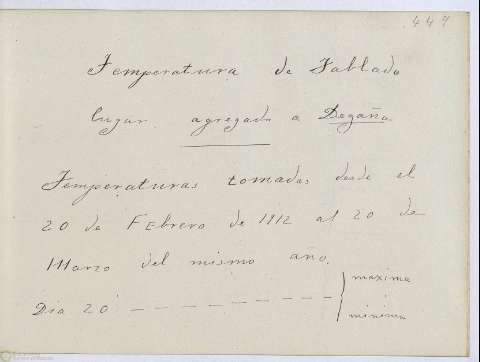 447
Temperatura de Tablado
lugar agregado a Degaña
Temperaturas tomadas desde el
20 de FEbrero de 1912 al 20 de
Marzo del mismo año.
maxima
Dia 20
minima